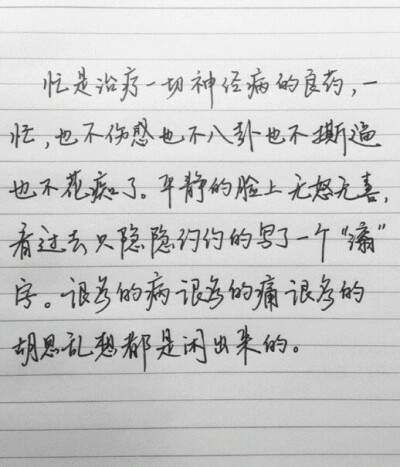 忙是治疗一切神经病的良药，一
忙，也不伤感也不八卦也不撕逼
也不花痴了。平静的脸上无怒无喜，
看过去只隐隐约约的写了一个“痛”
字。很多的病很多的痛很多的
胡思乱想都是闲出来的。